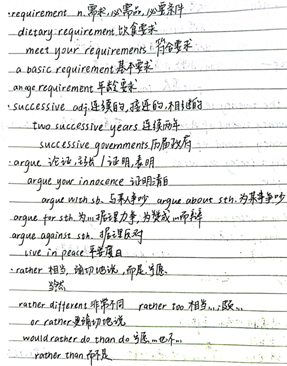 ·requirement n.需求,必需品,必要条件
dietary requirement 饮食要求
meet your requirements 符合要求
a basic requirement 基本要求
an age requirement 年龄要求
·successive adj.连续的,接连的,相继的
two successive years 连续两年
successive governments 历届政府
·argue 论证,主张/证明,表明
argue your innocence 证明清白
argue with sb. 与某人争吵 argue about sth. 为某事争吵
argue for sth. 为...据理力争,为赞成...而辩
argue against sth. 据理反对
live in peace 平安度日
·rather 相当,确切地说,而是,宁愿
当然
rather different 非常不同 rather too 相当...;一
or rather 更确切地说
would rather do than do 宁愿...也不...
rather than 而不是